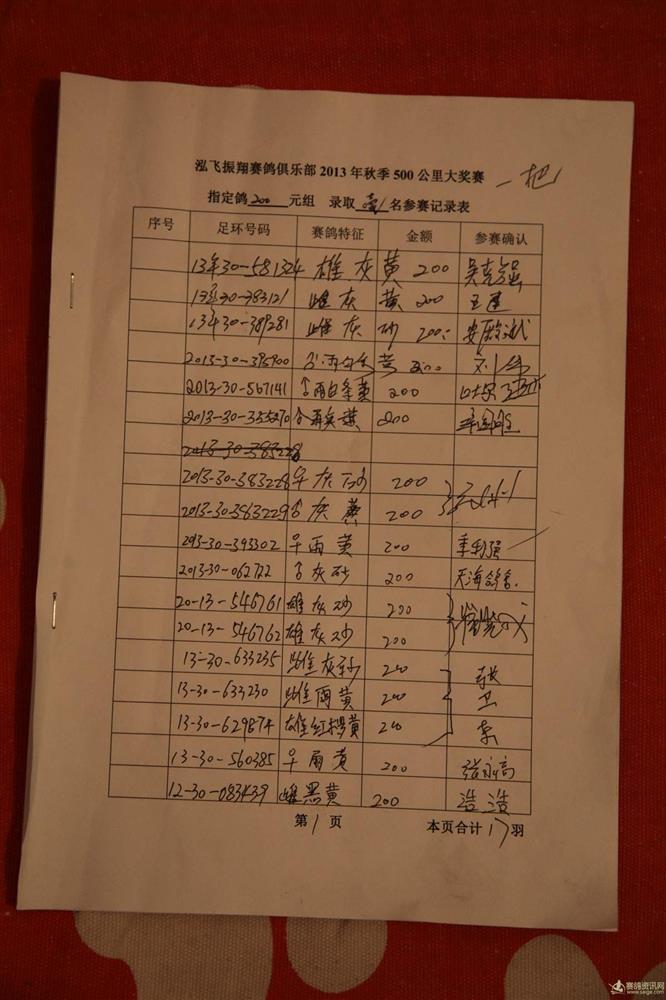 泓飞振翔赛鸽俱乐部2013年秋季500公里大奖赛 一把
指定鸽200元组 录取壹名参赛记录表
序号 足环号码 赛鸽特征 金额 参赛确认
13年30-581324 雄 灰 黄 200 吴克强
13年30-383121 雌 灰 黄 200 王建
13年30-389281 雌 灰 砂 200
2013-30-395900 黄 200 刘
2013-30-567141 ♂雨白条黄 200
2013-30-355270 200
2013-30-383228
2013-30-383228 灰 砂 200
2013-30-383229 ♂灰 黄 200
2013-30-393302 ♀雨 黄 200 季利强
2013-30-062722 ♂灰 砂 200 天海鸽舍
20-13-546761 雄灰砂 200
20-13-546762 雄灰砂 200
13-30-633235 雌灰砂 200 张
13-30-633230 雌雨黄 200 卫
13-30-629874 雄红楞黄 200 东
13-30-560385 ♀雨黄 200 张永高
12-30-083439 雌黑黄 200 浩浩
第1页 本页合计17羽
赛鸽资讯网
www.saige.com